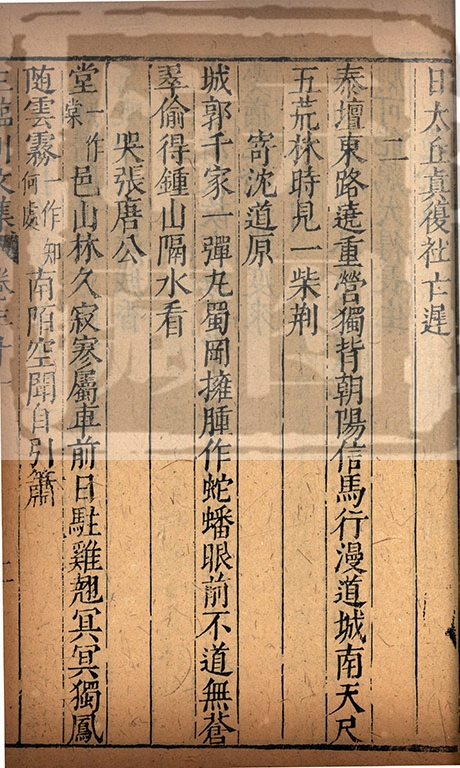 日太丘真復社亡遲
二
泰壇東路遶重營獨背朝陽信馬行漫道城南天尺
五荒林時見一柴荆
寄沈道原
城郭千家一彈丸蜀岡擁腫作蛇蟠眼前不道無蒼
翠偷得鍾山隔水看
哭張唐公
堂一作棠邑山林久寂寥屬車前日駐雞翹冥冥獨鳳
随雲霧一作知何處南陌空聞自引簫